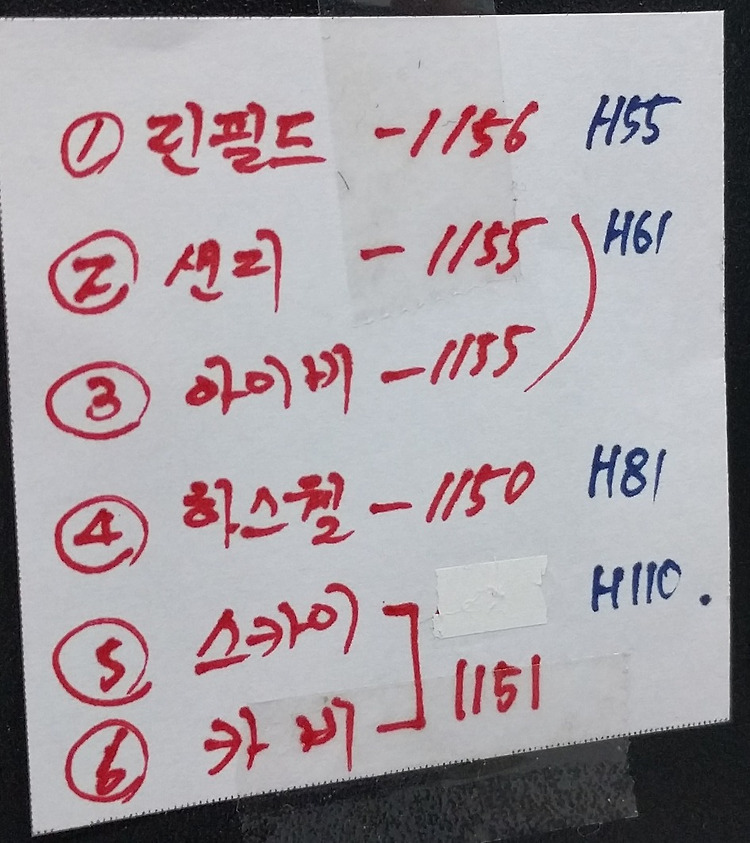 ① 린필드 - 1156 H55
② 샌디 - 1155 H61
③ 아이비 - 1155
④ 하스웰 - 1150 H81
⑤ 스카이 H110.
⑥ 카비 1151